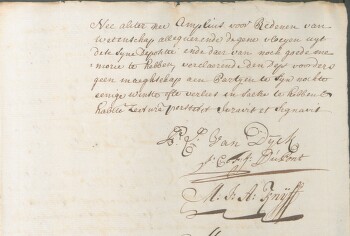 Nec aliter nec Amplius voor Redenen van
wetenschap allegueerende de gene vloeyen uyt
dese syne depositie, ende daer van noch goede me-
morie te hebben, verclaerende den depst voorders
geen maeghschap aen Partyen te syn nochte
eenige winste ofte verlies in saecke te hebben &
facta Lectura persistit Juravit et Signavit
Van Dyck
Dupont
M: J: A: Knyff